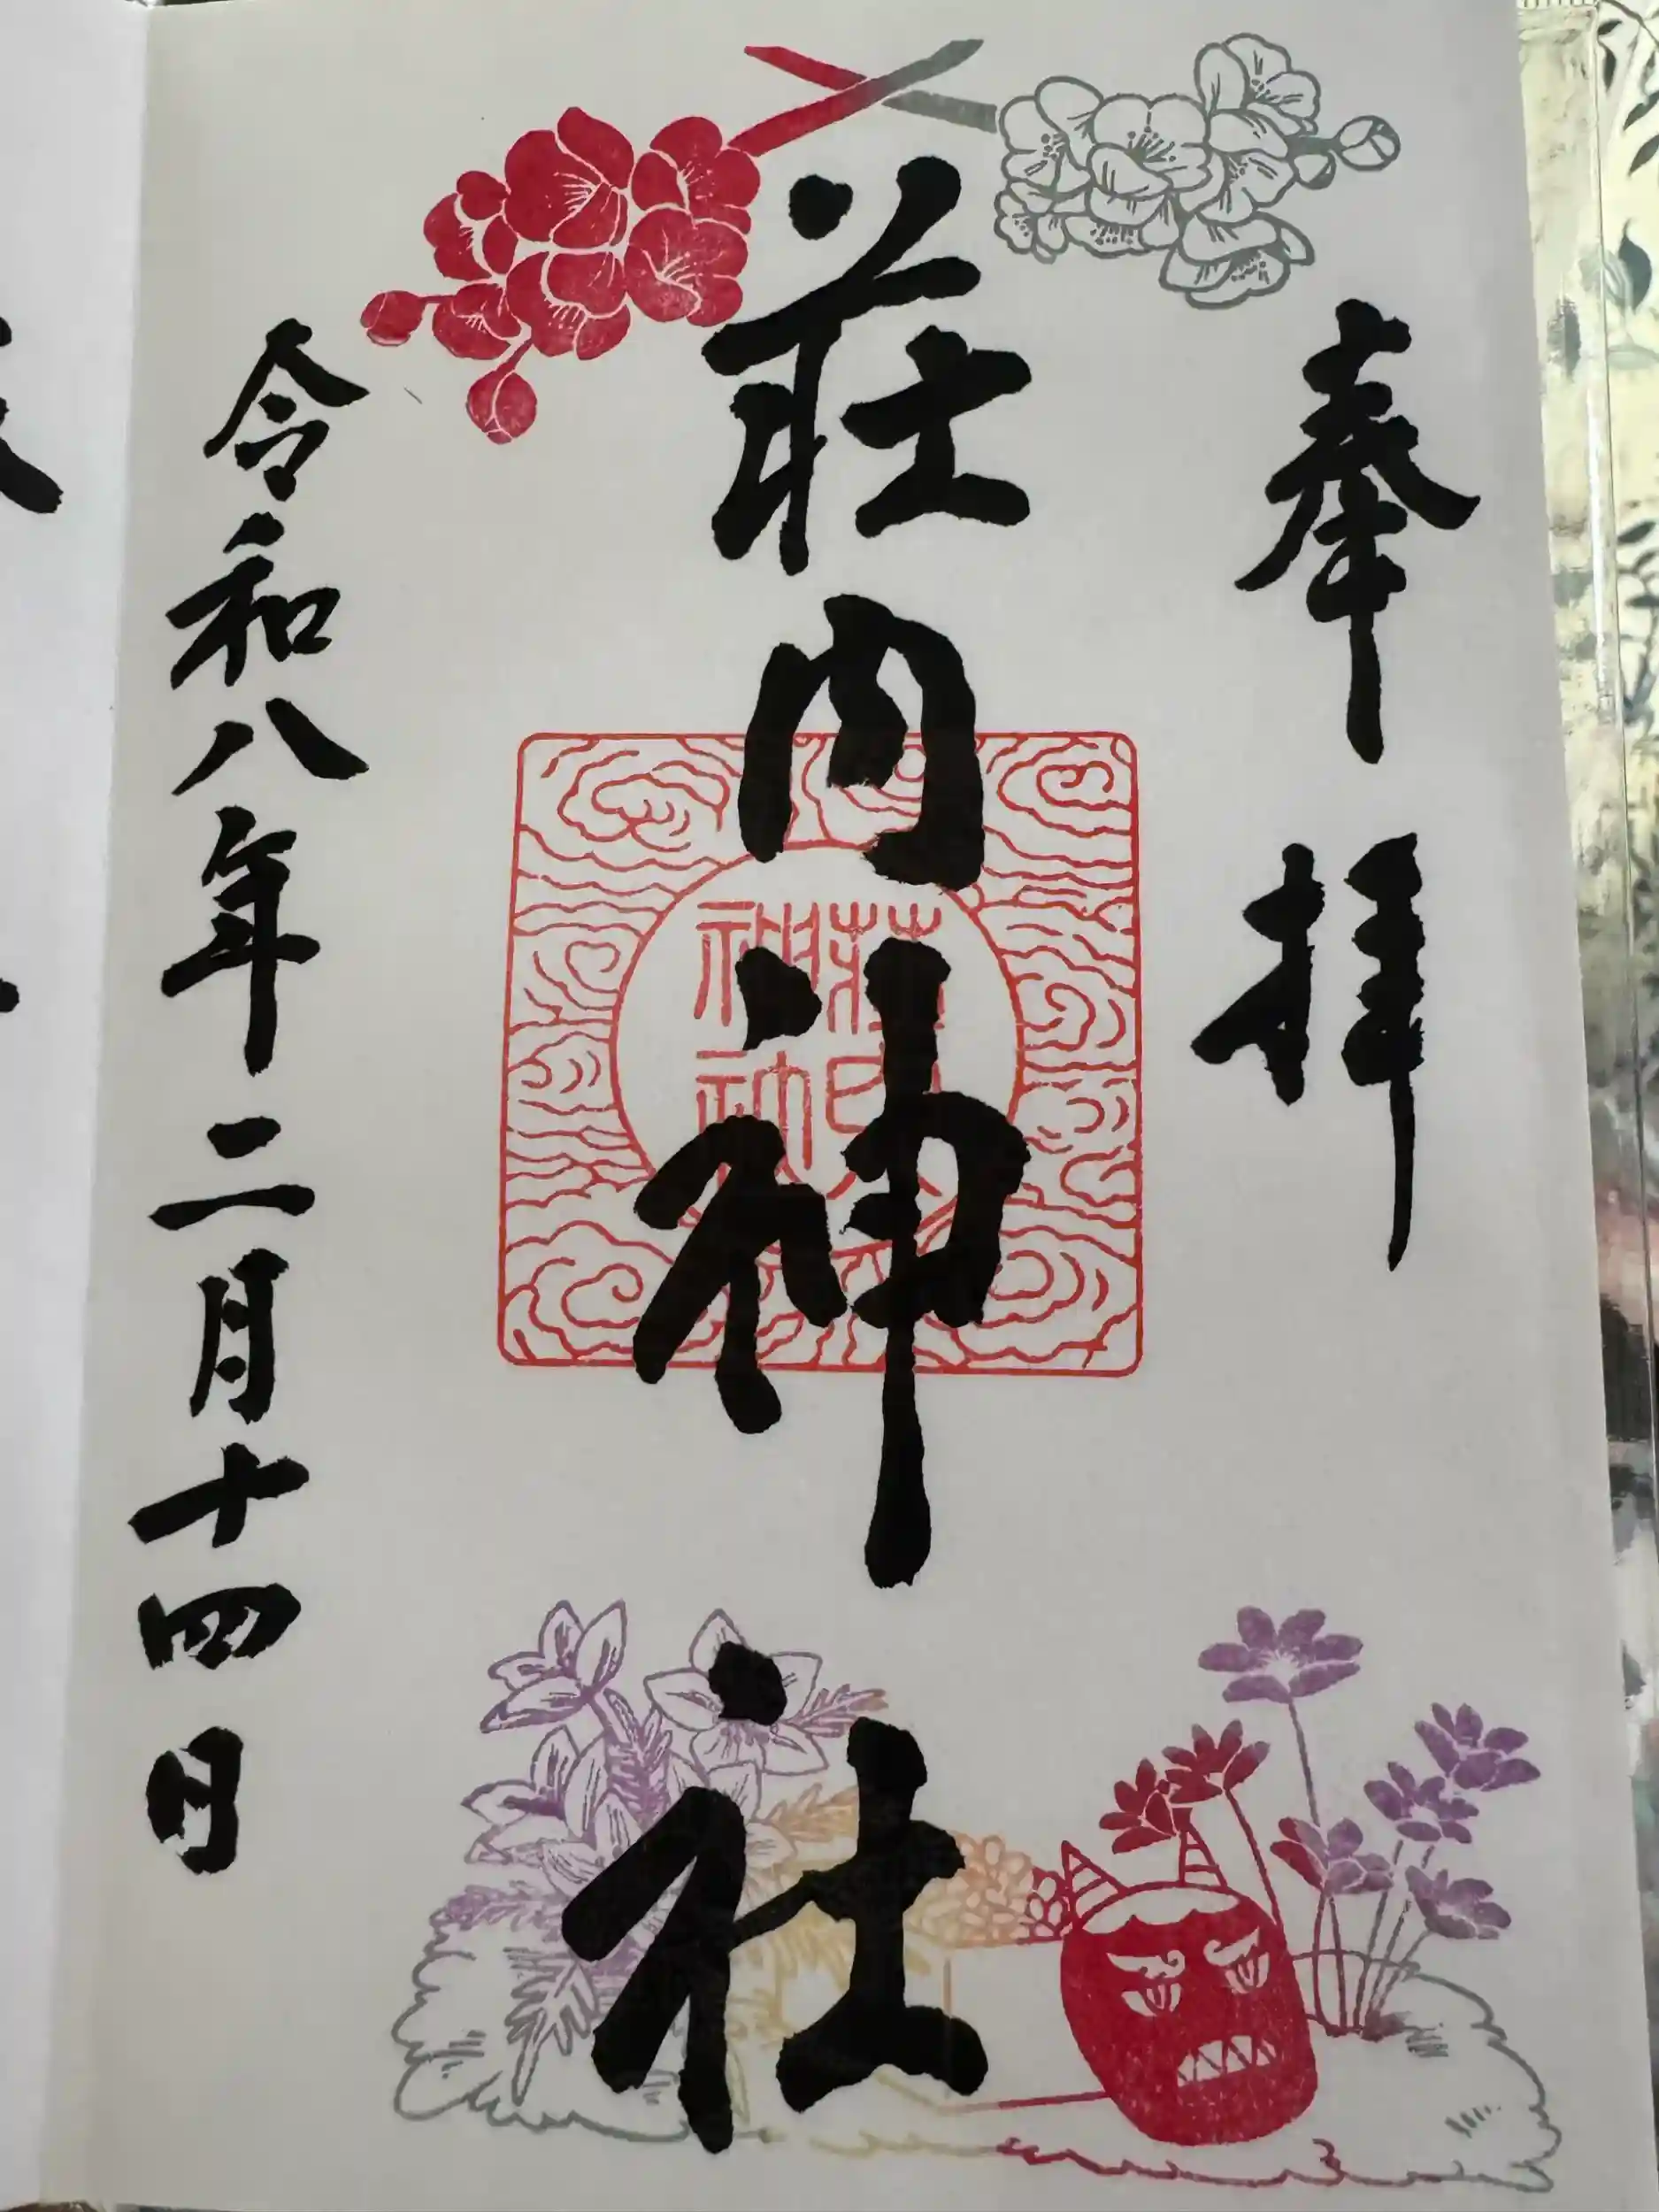 奉拝
荘内神社
荘内
神社
令和八年二月十四日